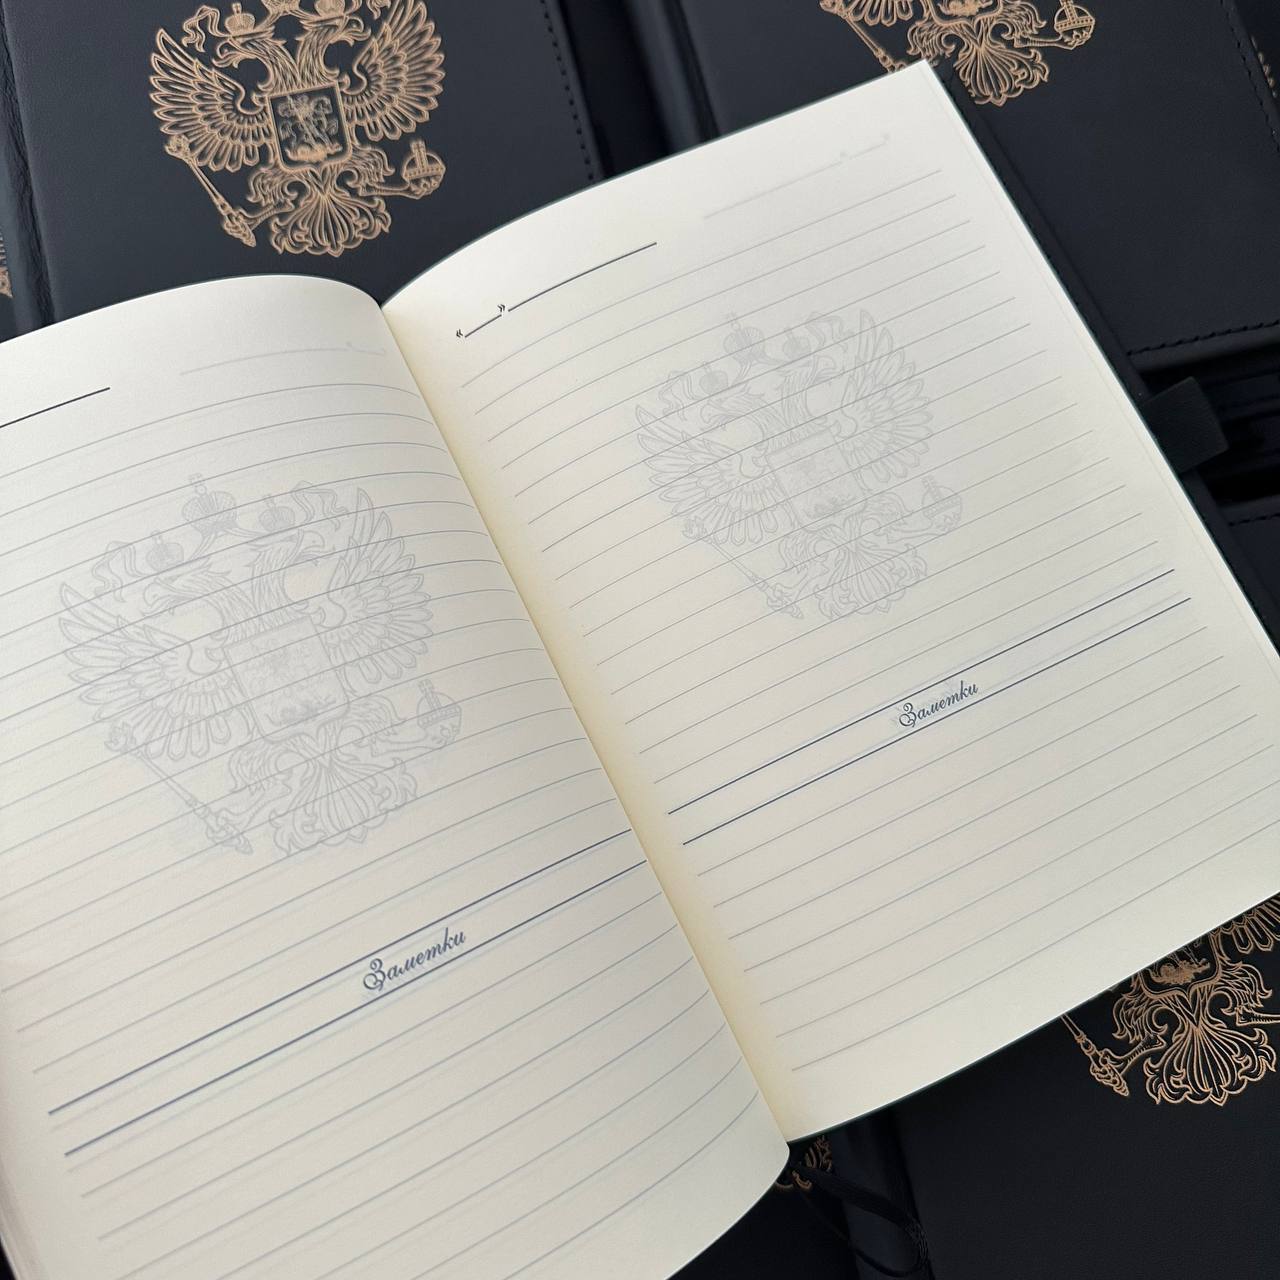 Заметки
«___»
Заметки